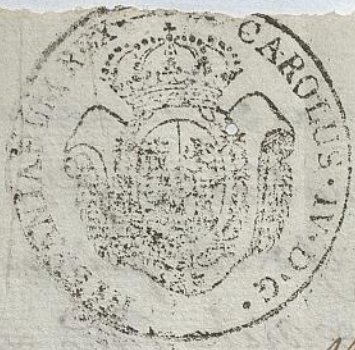 CAROLUS · IV · D · G ·
HISPANIARUM REX